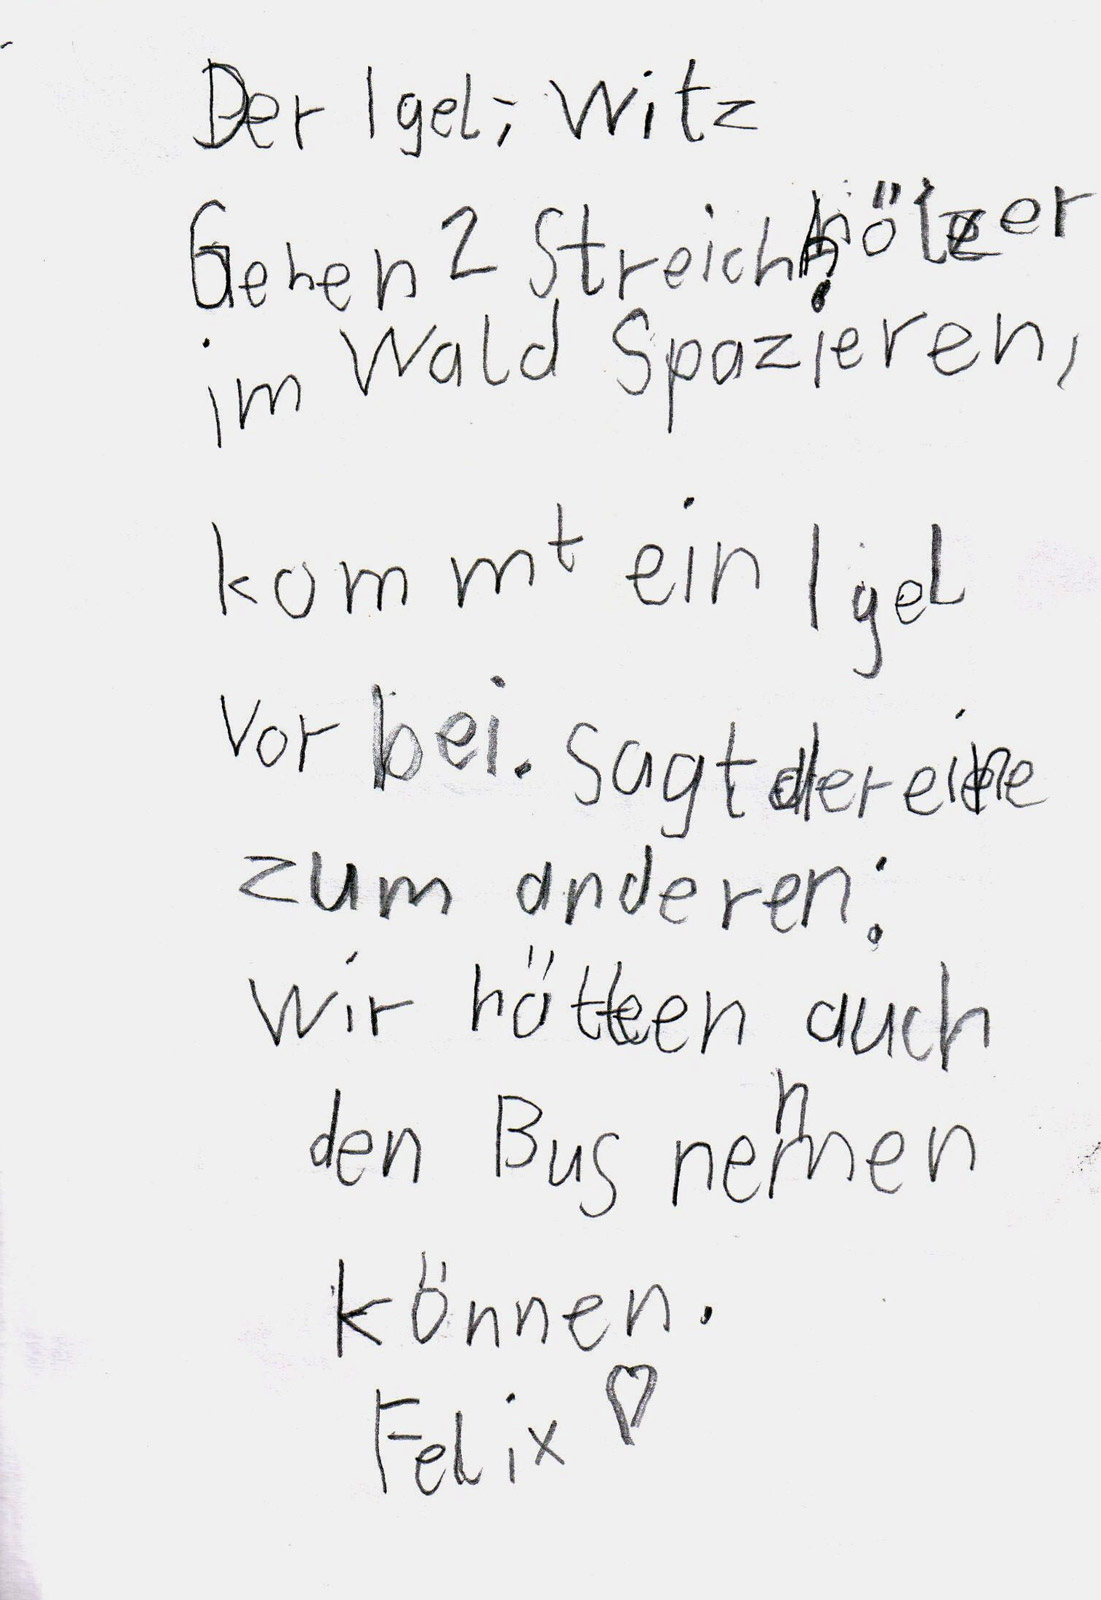 Der Igel; Witz
Gehen 2 Streichhölzer
im Wald Spazieren,
kommt ein Igel
vor bei. Sagt der eine
zum anderen:
Wir hötten auch
den Bus nehmen
können.
Felix ♡